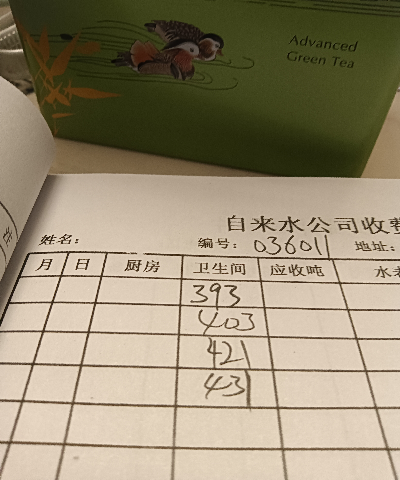 Advanced
Green Tea
自来水公司收费
姓名： 编号：036011 地址：
月 日 厨房 卫生间 应收吨 水
393
403
421
431